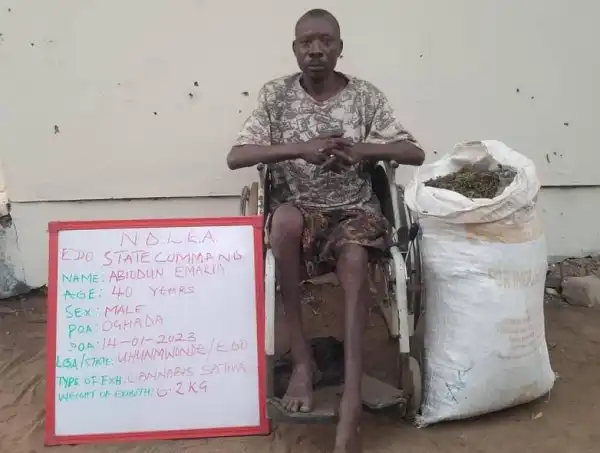 N.D.L.E.A
EDO STATE COMMAND
NAME: ABIODUN EMAKIA
AGE: 40 YEARS
SEX: MALE
POA: OGHADA
DOA: 14-01-2023
LGA/STATE: UHUNMWONDE/EDO
TYPE OF EXH: CANNABIS SATIVA
WEIGHT OF EXHIBIT: 2KG